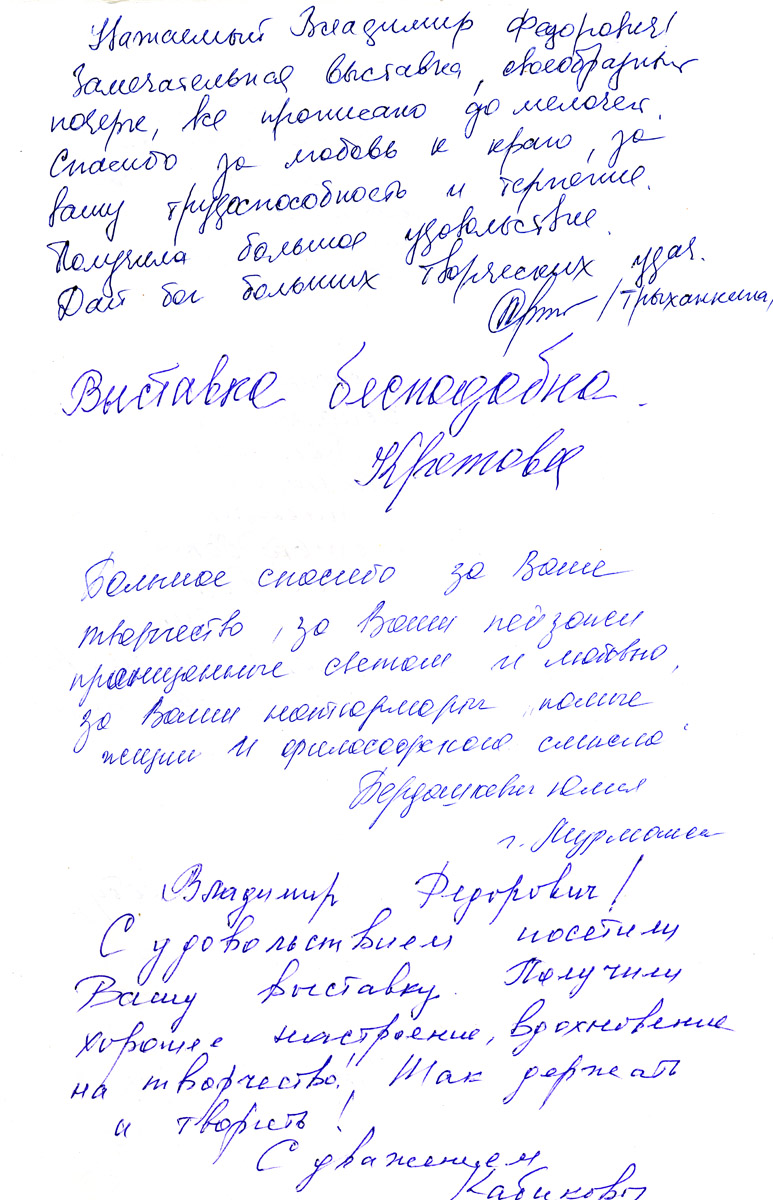 Уважаемый Владимир Федорович!
Замечательная выставка, своеобразный
почерк, все прописано до мелочей.
Спасибо за любовь к краю, за
вашу трудоспособность и терпение.
Получила большое удовольствие.
Дай бог больших творческих удач.
/Трыханкина/
Выставка бесподобна.
Кротова
Большое спасибо за Ваше
творчество, за Ваши пейзажи
пронизанные светом и любовью,
за Ваши натюрморты полные
жизни и философского смысла.
Бердашкевич Юлия
г. Мурманск
Владимир Федорович!
С удовольствием посетили
Вашу выставку. Получили
хорошее настроение, вдохновение
на творчество! Так держать
и творить!
С уважением
Кабиковы